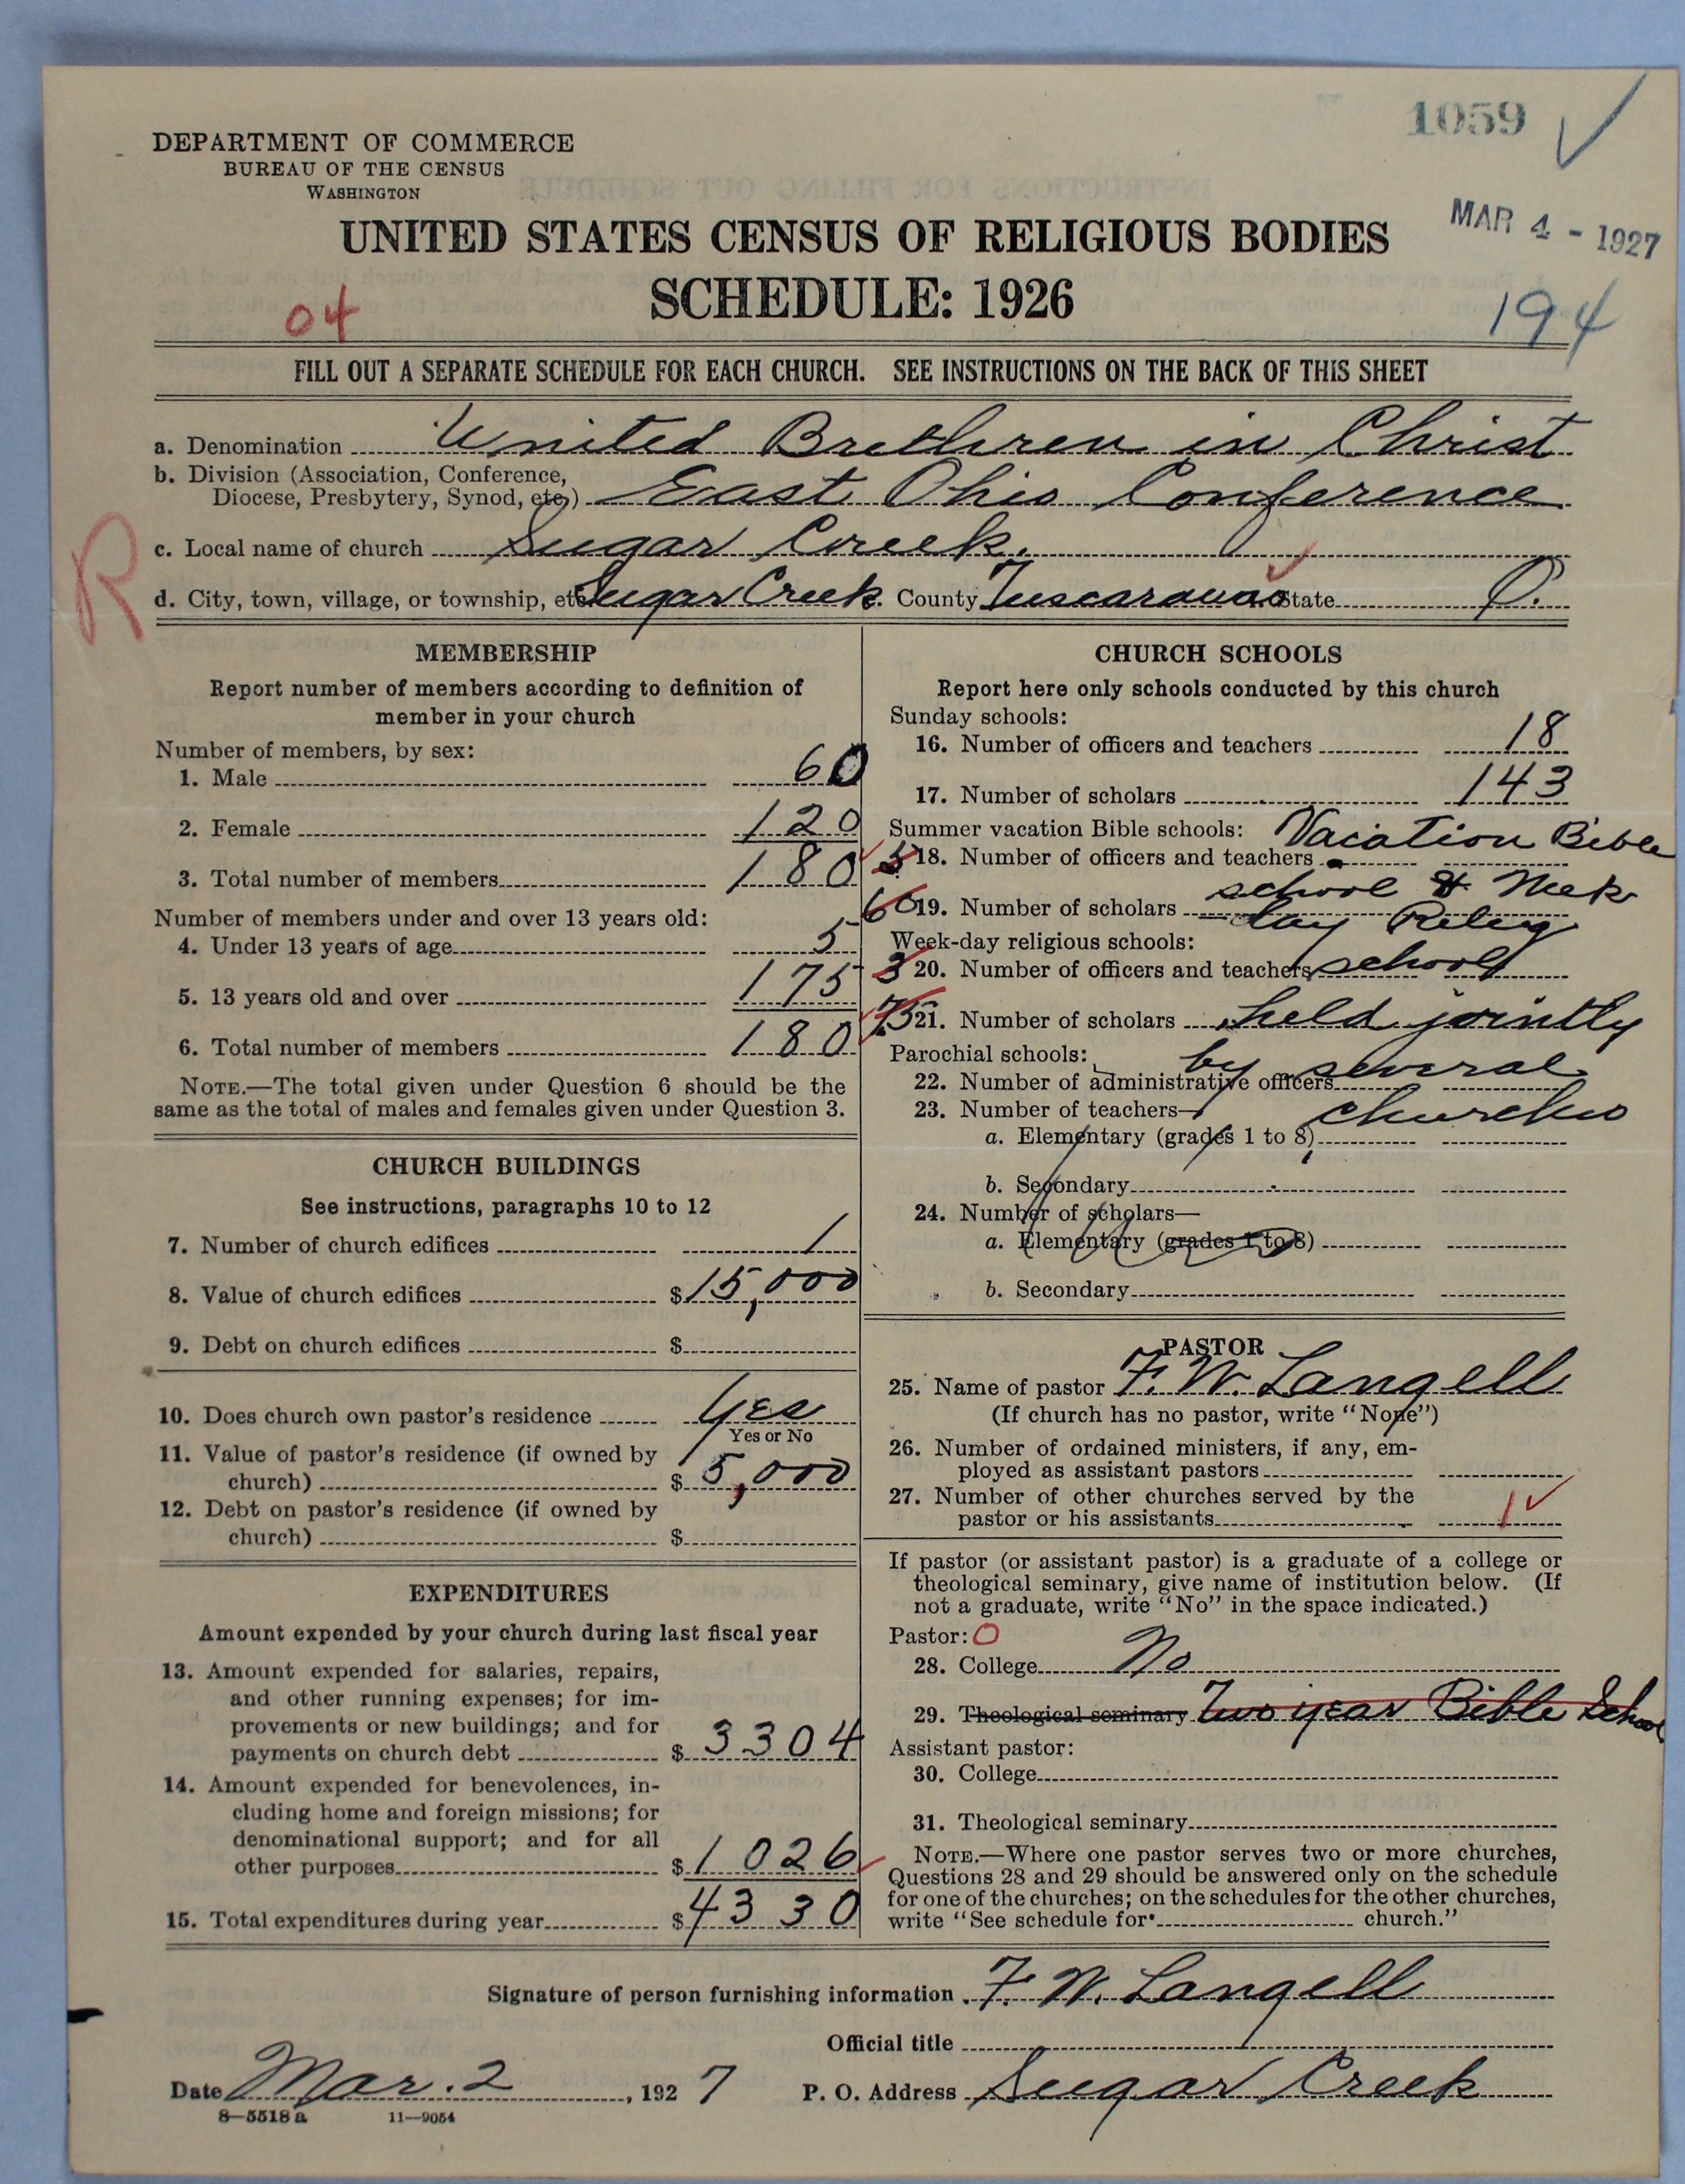 1059
DEPARTMENT OF COMMERCE
BUREAU OF THE CENSUS
WASHINGTON
UNITED STATES CENSUS OF RELIGIOUS BODIES
MAR 4 - 1927
SCHEDULE: 1926
04
194
FILL OUT A SEPARATE SCHEDULE FOR EACH CHURCH. SEE INSTRUCTIONS ON THE BACK OF THIS SHEET
a. Denomination United Brethren in Christ
b. Division (Association, Conference,
Diocese, Presbytery, Synod, etc.) East Ohio Conference
R
c. Local name of church Sugar Creek.
d. City, town, village, or township, etc. Sugar Creek. County Tuscarawas State O.
MEMBERSHIP
Report number of members according to definition of
member in your church
Number of members, by sex:
1. Male 60
2. Female 120
3. Total number of members 180
Number of members under and over 13 years old:
4. Under 13 years of age 5
5. 13 years old and over 175
6. Total number of members 180
NOTE.—The total given under Question 6 should be the
same as the total of males and females given under Question 3.
CHURCH BUILDINGS
See instructions, paragraphs 10 to 12
7. Number of church edifices 1
8. Value of church edifices $15,000
9. Debt on church edifices $
10. Does church own pastor's residence Yes
Yes or No
11. Value of pastor's residence (if owned by
church) $ 5,000
12. Debt on pastor's residence (if owned by
church) $
EXPENDITURES
Amount expended by your church during last fiscal year
13. Amount expended for salaries, repairs,
and other running expenses; for im-
provements or new buildings; and for
payments on church debt $ 3304
14. Amount expended for benevolences, in-
cluding home and foreign missions; for
denominational support; and for all
other purposes $1026
15. Total expenditures during year $4330
CHURCH SCHOOLS
Report here only schools conducted by this church
Sunday schools:
16. Number of officers and teachers 18
17. Number of scholars 143
Summer vacation Bible schools: Vacation Bible
18. Number of officers and teachers
school & Week
60 19. Number of scholars day Relig
Week-day religious schools:
3 20. Number of officers and teachers school
75 21. Number of scholars held jointly
Parochial schools: by several
22. Number of administrative officers
23. Number of teachers— churches
a. Elementary (grades 1 to 8)
b. Secondary
24. Number of scholars—
a. Elementary (grades 1 to 8)
b. Secondary
PASTOR
25. Name of pastor F. W. Langell
(If church has no pastor, write "None")
26. Number of ordained ministers, if any, em-
ployed as assistant pastors
27. Number of other churches served by the
pastor or his assistants 1
If pastor (or assistant pastor) is a graduate of a college or
theological seminary, give name of institution below. (If
not a graduate, write "No" in the space indicated.)
Pastor: O
28. College No
29. Theological seminary Two year Bible School
Assistant pastor:
30. College
31. Theological seminary
NOTE.—Where one pastor serves two or more churches,
Questions 28 and 29 should be answered only on the schedule
for one of the churches; on the schedules for the other churches,
write "See schedule for church."
Signature of person furnishing information F. W. Langell
Official title
Date Mar. 2, 1927 P. O. Address Sugar Creek
8—5518 a 11—9054